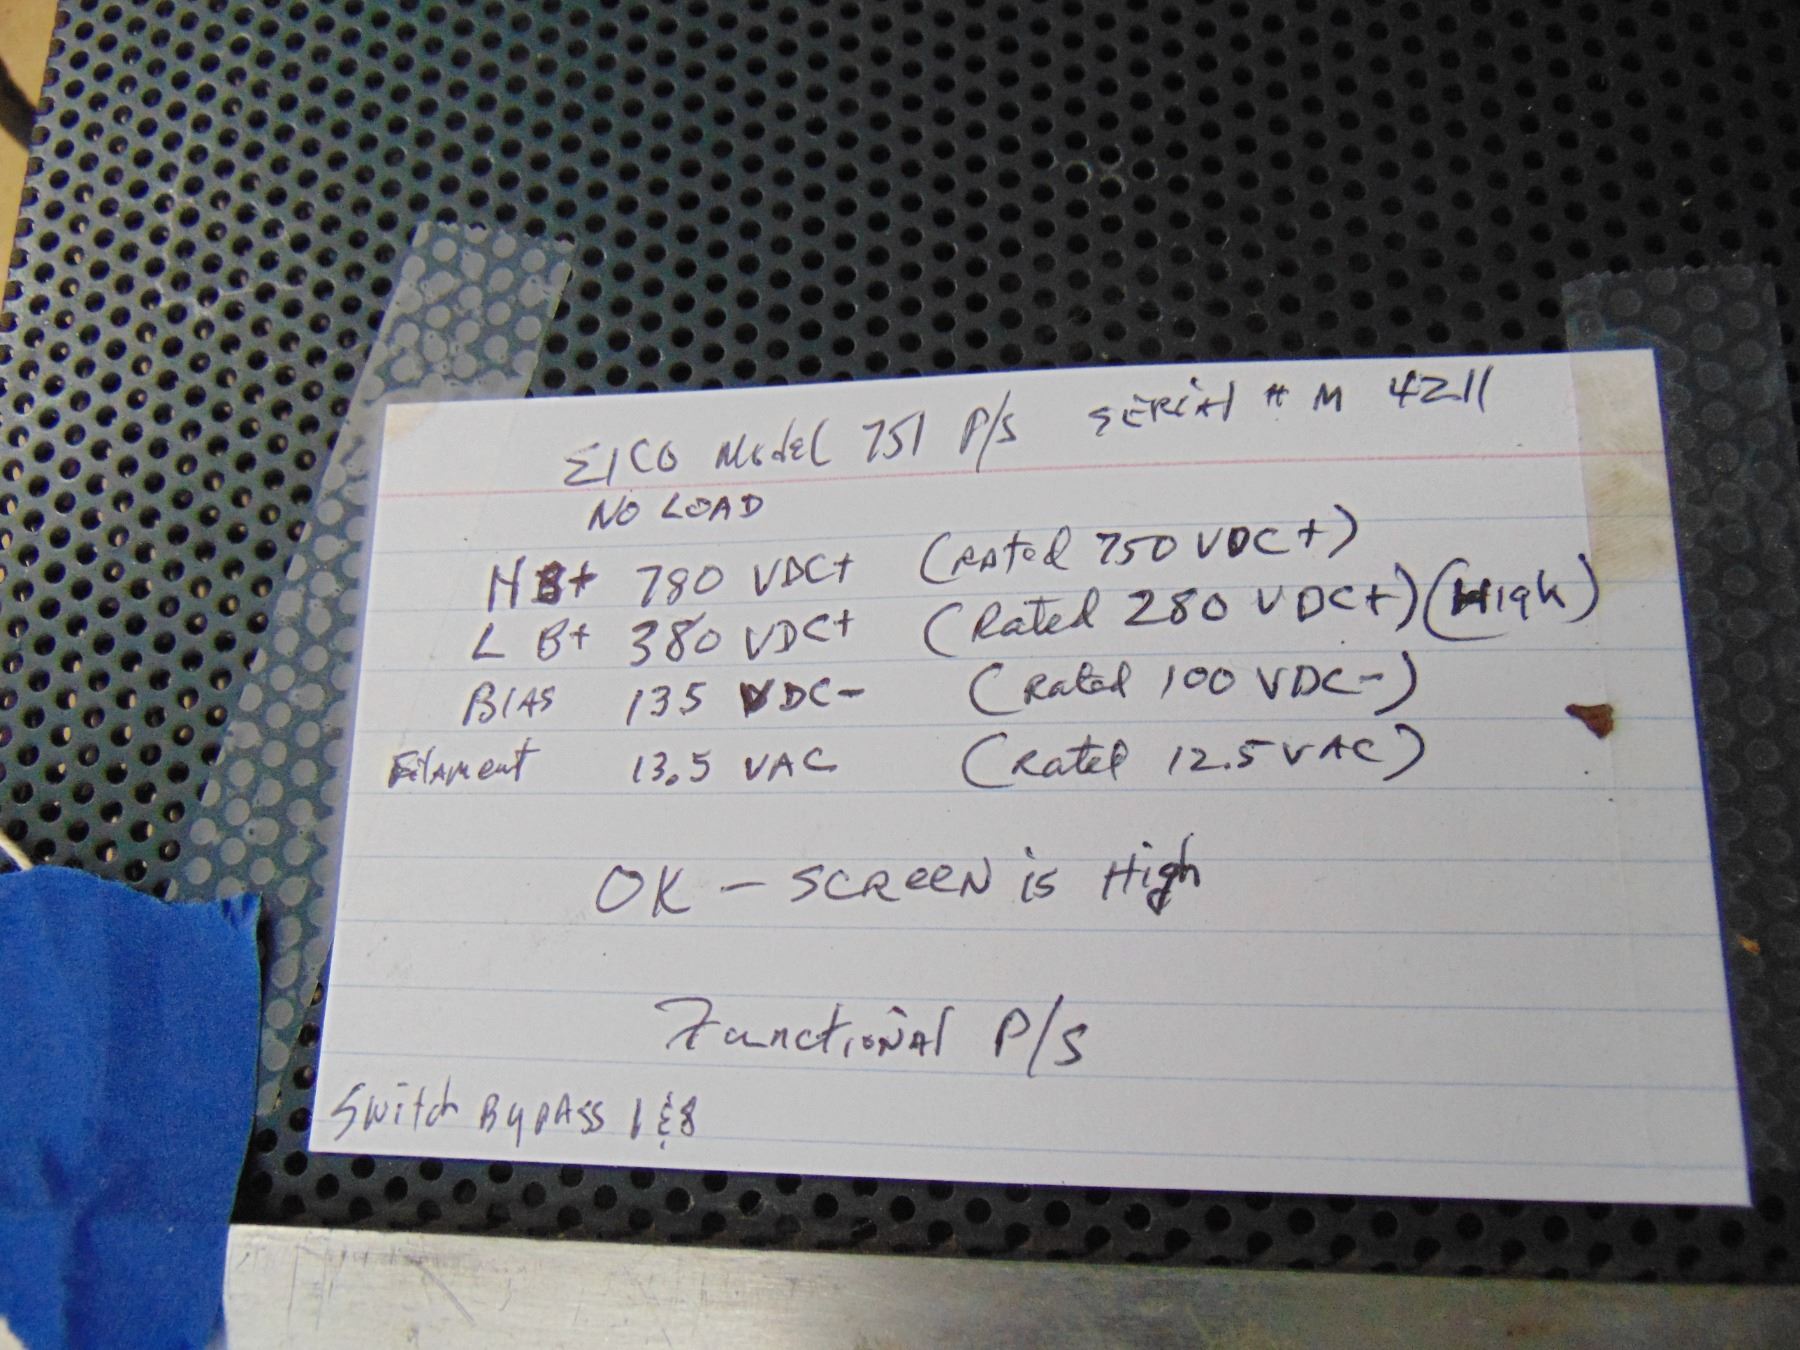 EICO Model 751 P/S SERIAl # M 4211
NO LOAD
H B+ 780 VDC+ (rated 750 VDC+)
L B+ 380 VDC+ (Rated 280 VDC+) (High)
BIAS 135 VDC- (Rated 100 VDC-)
Filament 13.5 VAC (Rated 12.5 VAC)
OK - SCREEN is High
Functional P/S
Switch Bypass 1 & 8